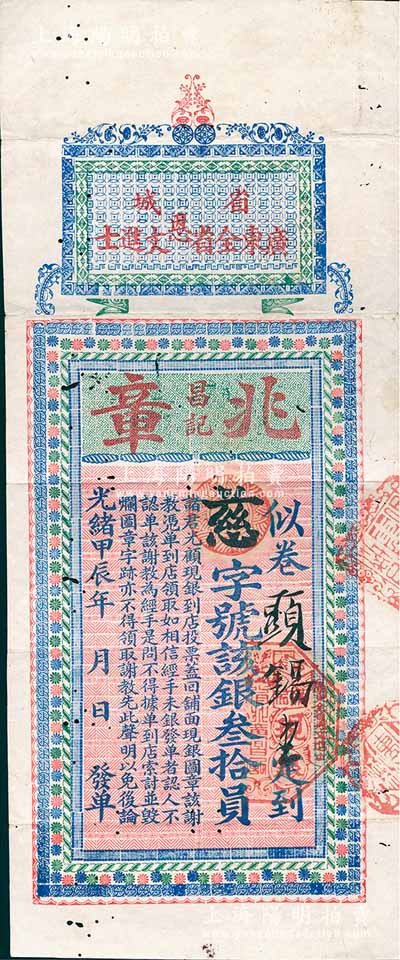 上海陽明拍賣
省城
廣東全省恩文進士
兆昌記章
似卷
定到
慈字號該銀叁拾員
諸君光顧現銀到店投票蓋回舖面現銀圖章該謝
教憑單到店領取如相信經手未銀發單者認人不
認單該謝教為經手是問不得據單到店索討並毀
爛圖章字跡亦不得領取謝教先此聲明以免後論
光緒甲辰年 月 日 發單
上海陽明拍賣
上海陽明拍賣